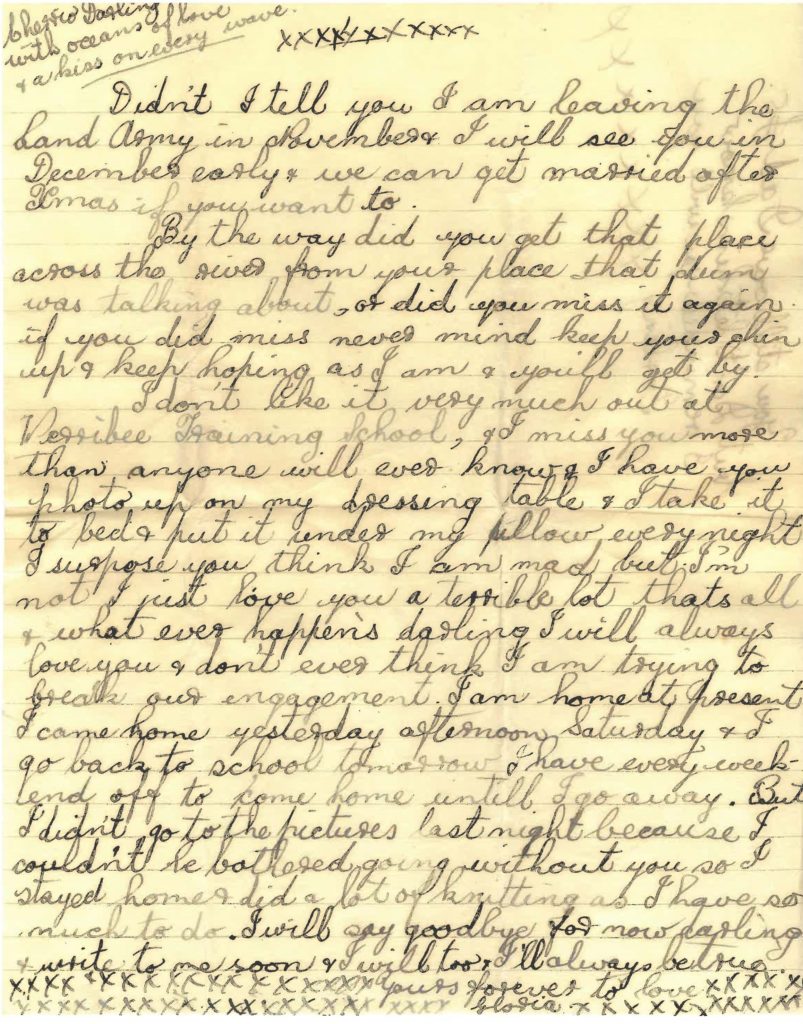 Cherrio Darling
with oceans of love
& a kiss on every wave.
xxxxxxxxxxx
Didn't I tell you I am leaving the
Land Army in November & I will see you in
December early & we can get married after
Xmas if you want to.
By the way did you get that place
across the river from your place that dum
was talking about, or did you miss it again
if you did miss never mind keep your chin
up & keep hoping as I am & you'll get by.
I don't like it very much out at
Werribee Training School, & I miss you more
than anyone will ever know & I have you
photo up on my dressing table & I take it
to bed & put it under my pillow every night
I surpose you think I am mad but I'm
not I just love you a terrible lot thats all
& what ever happen's darling I will always
love you & don't ever think I am trying to
break our engagement. I am home at present
I came home yesterday afternoon Saturday & I
go back to school tomorrow I have every week-
end off to come home untill I go away. But
I didn't go to the pictures last night because I
couldn't be bothered going without you so I
stayed home & did a lot of knitting as I have so
much to do. I will say goodbye for now darling
& write to me soon & I will too & I'll always be true
xxxxxxxxxxxxxx yours forever to love xxxxxx
xxxxxxxxxxxxxxxx xxxx Gloria. xxxxxxx